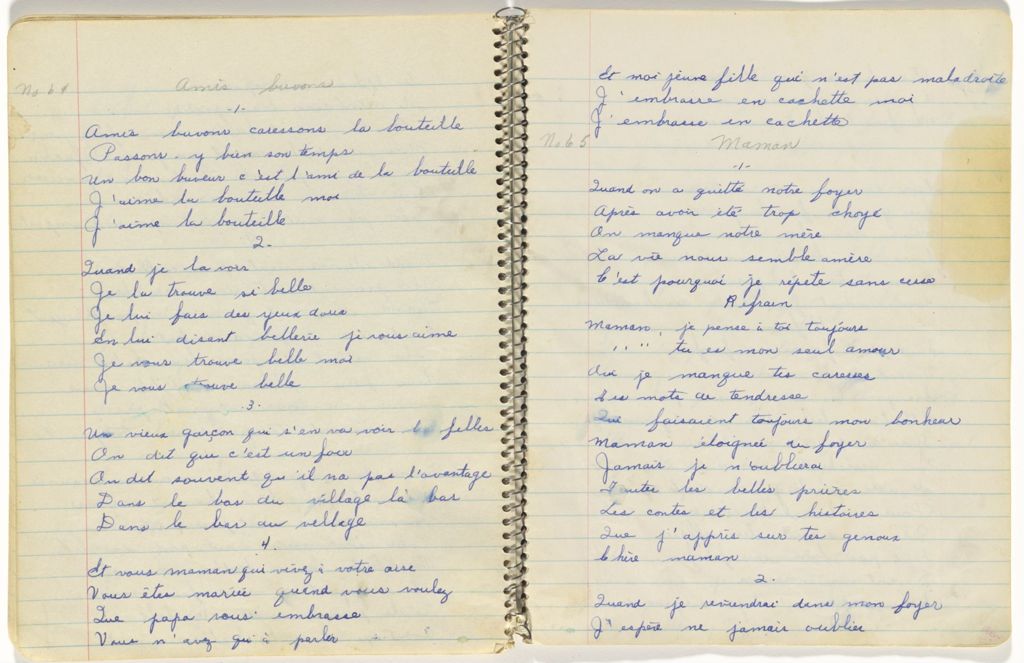 No 64 Amis buvons
-1-
Amis buvons caressons la bouteille
Passons-y bien son temps
Un bon buveur c'est l'ami de la bouteille
J'aime la bouteille moi
J'aime la bouteille
2-
Quand je la vois
Je la trouve si belle
Je lui fais des yeux doux
En lui disant bellerie je vous aime
Je vous trouve belle moi
Je vous trouve belle
.3.
Un vieux garçon qui s'en va voir les filles
On dit que c'est un fou
On dit souvent qu'il na pas l'avantage
Dans le bas du village la bas
Dans le bas du village
4.
Et vous maman qui vivez à votre aise
Vous êtes mariée quand vous voulez
Que papa vous embrasse
Vous n'avez qu'à parler
Et moi jeune fille qui n'est pas maladroite
J'embrasse en cachette moi
J'embrasse en cachette
No 65 Maman
-1-
Quand on a quitté notre foyer
Après avoir été trop choyé
On manque notre mère
La vie nous semble amère
C'est pourquoi je répète sans cesse
Refrain
Maman, je pense à toi toujours
" " " tu es mon seul amour
Oui je manque tes caresses
Tes mots de tendresse
Qui faisaient toujours mon bonheur
Maman éloignée du foyer
Jamais je n'oublierai
Toutes les belles prières
Les contes et les histoires
Que j'appris sur tes genoux
Chère maman
2.
Quand je reviendrai dans mon foyer
J'espère ne jamais oublier